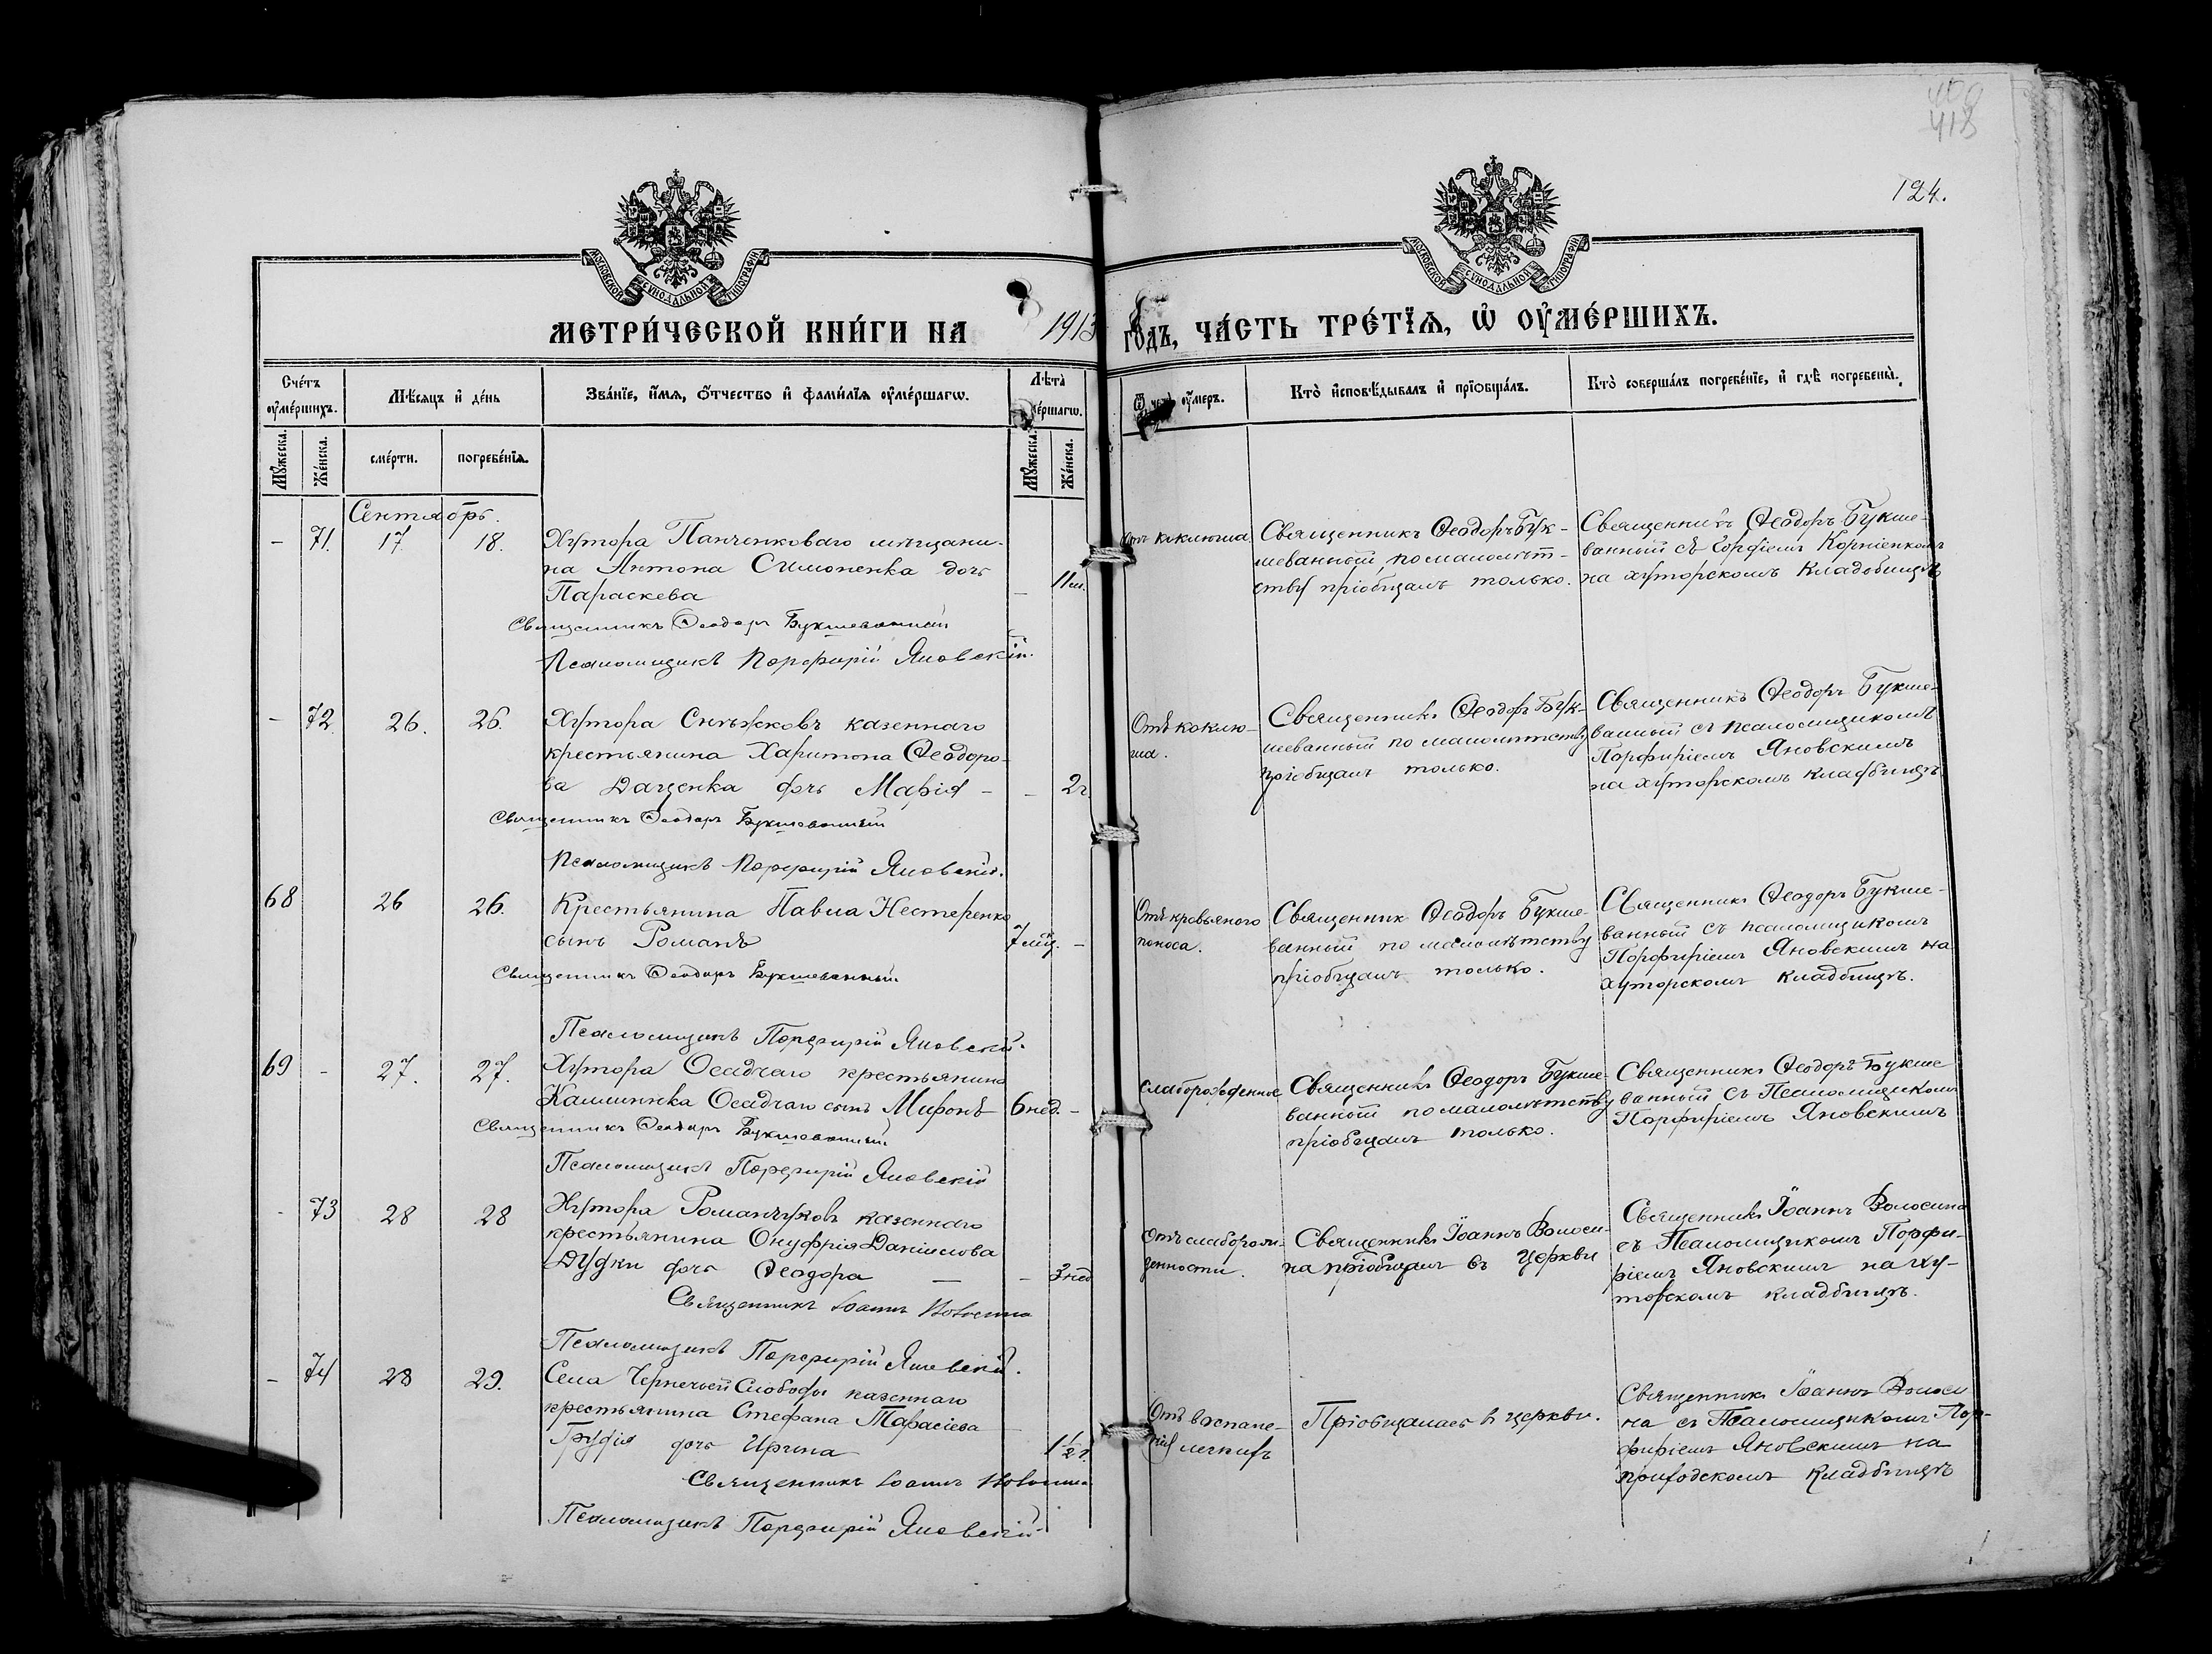 400
418
124.
МОСКОВСКОЙ СѴНОДАЛЬНОЙ ТИПОГРАФІИ
МОСКОВСКОЙ СѴНОДАЛЬНОЙ ТИПОГРАФІИ
МЕТРИ́ЧЕСКОЙ КНИ́ГИ НА 1913 ГОДЪ, ЧА́СТЬ ТРЕ́ТЇѦ, Ѡ҆ ОУ҆МЕ́РШИХЪ.
Сче́тъ оу҆ме́ршихъ.
Мѣ́сяцъ и҆ де́нь
Зва́нїе, и҆́мя, ѻ҆́тчество и҆ фами́лїя оу҆ме́ршагѡ.
Лѣта̀ оу҆ме́ршагѡ.
Ѿ чегѡ̀ оу҆́меръ.
Кто̀ и҆сповѣ́дывалъ и҆ прїѡбща́лъ.
Кто̀ соверша́лъ погребе́нїе, и҆ гдѣ̀ погребены̀.
Мꙋ́жеска.
Же́нска.
сме́рти.
погребе́нїя.
Мꙋ́жеска.
Же́нска.
Сентябрь.
- 71. 17 18.
Хутора Панченковаго мѣщани-
на Антона Симоненка дочь
Параскева - 11 м.
Священникъ Ѳеодоръ Букшеванный
Псаломщикъ Порфирій Яновскій.
Отъ коклюша
Священникъ Ѳеодоръ Бук-
шеванный, по малолѣт-
ству пріобщалъ только.
Священникъ Ѳеодоръ Букше-
ванный съ Корніенкомъ
на хуторскомъ кладбищѣ
- 72. 26. 26.
Хутора Снѣжковъ казеннаго
крестьянина Харитона Ѳеодоро-
ва Даценка дочь Марія - - 2 г.
Священникъ Ѳеодоръ Букшеванный
Псаломщикъ Порфирій Яновскій.
Отъ коклю-
ша.
Священникъ Ѳеодоръ Бук-
шеванный по малолѣтству
пріобщалъ только.
Священникъ Ѳеодоръ Букше-
ванный съ псаломщикомъ
Порфиріемъ Яновскимъ
на хуторскомъ кладбищѣ.
68 26 26.
Крестьянина Павла Нестеренко
сынъ Романъ 7 мѣс. -
Священникъ Ѳеодоръ Букшеванный
Псаломщикъ Порфирій Яновскій.
Отъ кровьяного
поноса.
Священник Ѳеодоръ Букше-
ванный по малолѣтству
пріобщалъ только.
Священникъ Ѳеодоръ Букше-
ванный съ псаломщикомъ
Порфиріемъ Яновскимъ на
хуторскомъ кладбищѣ.
69 - 27. 27.
Хутора Осадчаго крестьянина
Осадчаго сынъ Миронъ 6 нед. -
Священникъ Ѳеодоръ Букшеванный
Псаломщикъ Порфирій Яновскій
слаборожденное
Священникъ Ѳеодоръ Букше-
ванный по малолѣтству
пріобщалъ только.
Священникъ Ѳеодоръ Букше
ванный съ Псаломщикомъ
Порфиріемъ Яновскимъ
- 73 28 28
Хутора Романчуковъ казеннаго
крестьянина Онуфрія Даніилова
Дудки дочь Ѳеодора — - 3 нед
Священникъ Іоаннъ Волосина
Псаломщикъ Порфирій Яновскій.
Отъ слаборож-
денности.
Священникъ Іоаннъ Волоси-
на пріобщалъ въ церкви
Священникъ Іоаннъ Волосина
съ Псаломщикомъ Порфи-
ріемъ Яновскимъ на ху-
торскомъ кладбищѣ.
- 74 28 29.
Села Чернечьей Слободы казеннаго
крестьянина Стефана Тарасіева
дочь Ирина 1 1/2 г.
Священникъ Іоаннъ Волосина
Псаломщикъ Порфирій Яновскій
Отъ воспале-
нія легкихъ
Пріобщалась въ церкви.
Священникъ Іоаннъ Волоси
на съ Псаломщикомъ Пор-
фиріемъ Яновскимъ на
приходскомъ кладбищѣ